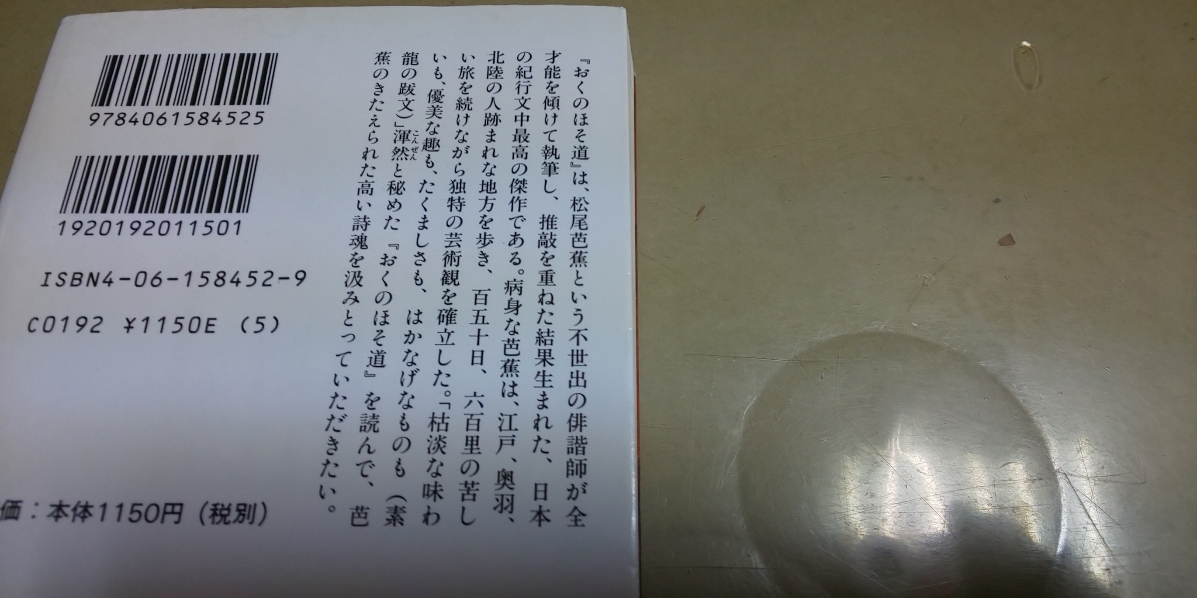 『おくのほそ道』は、松尾芭蕉という不世出の俳諧師が全
才能を傾けて執筆し、推敲を重ねた結果生まれた、日本
の紀行文中最高の傑作である。病身な芭蕉は、江戸、奥羽、
北陸の人跡まれな地方を歩き、百五十日、六百里の苦し
い旅を続けながら独特の芸術観を確立した。「枯淡な味わ
いも、優美な趣も、たくましさも、はかなげなものも（素
龍の跋文）」渾然と秘めた『おくのほそ道』を読んで、芭
こんぜん
蕉のきたえられた高い詩魂を汲みとっていただきたい。
9784061584525
1920192011501
ISBN4-06-158452-9
C0192 ¥1150E (5)
価：本体1150円（税別）